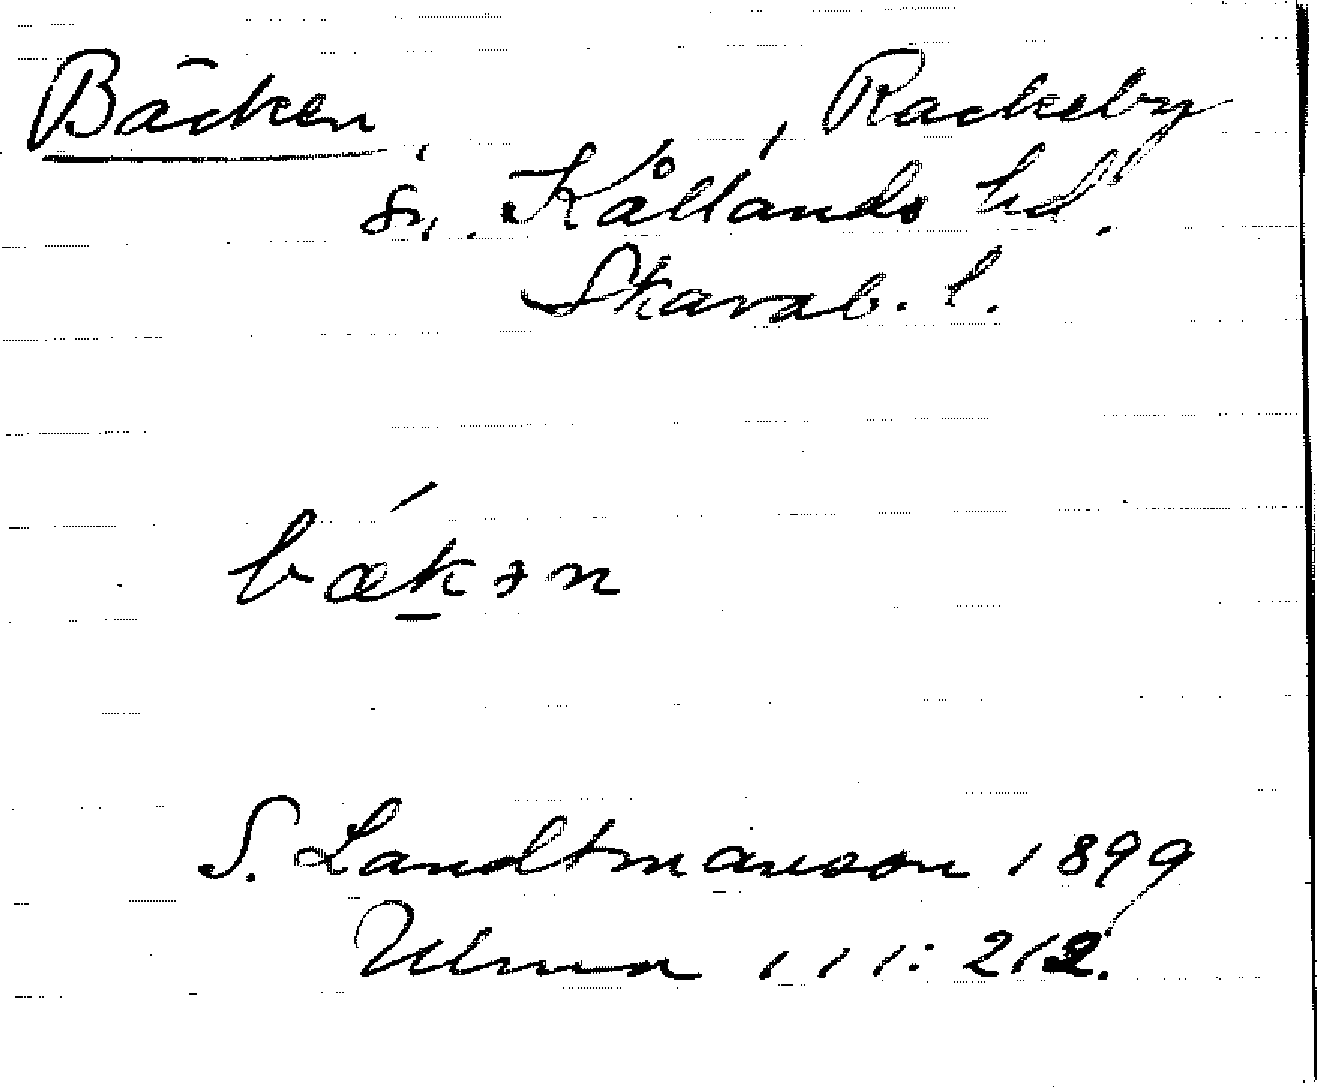 Bäcken, Rackeby
sn, Kållands hd.
Skarab. l.
bǽkən
S. Landtmanson 1899
Ulma 111:212.